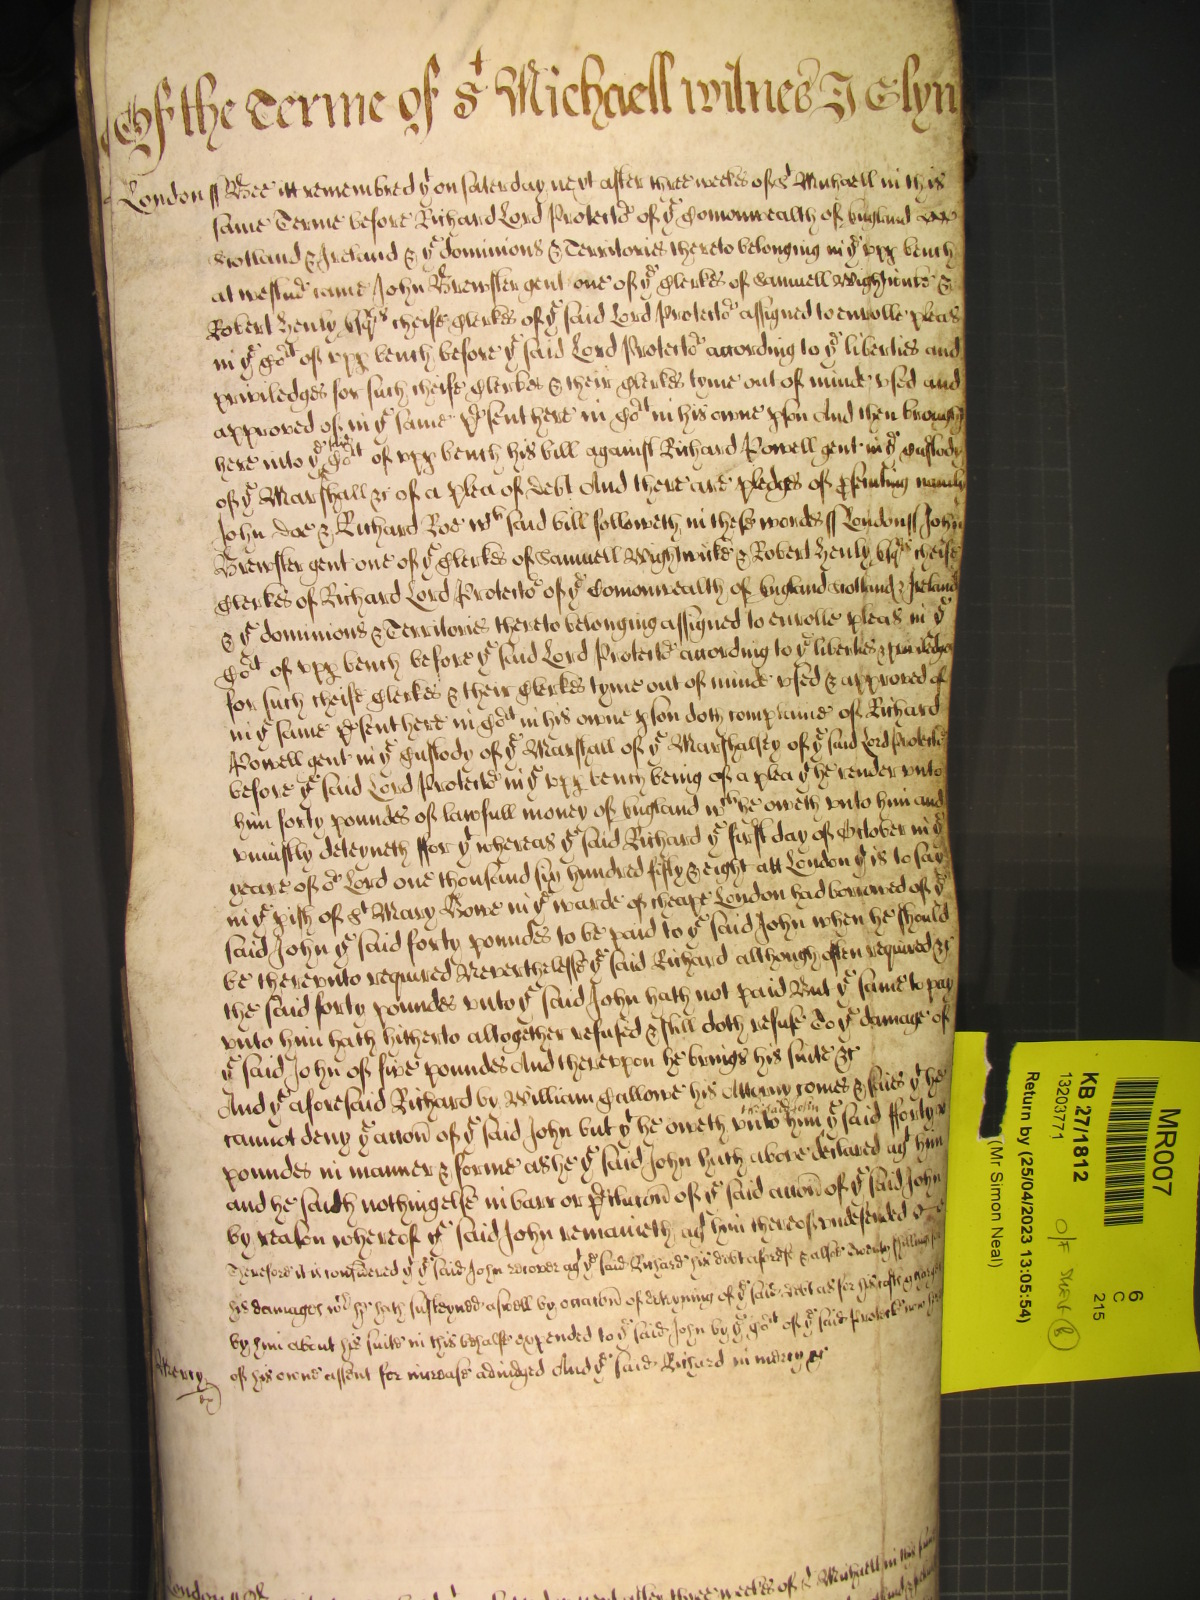 Of the Terme of St Michaell witnes J Glyn
London ss Bee itt remembred yt on Saterday next after three weekes of St Michaell in this
same Terme before Richard Lord Protector of ye Comonwealth of England
Scotland & Ireland & ye dominions & Territories thereto belonging in ye upp bench
at Westmr came John Brewster gent one of ye Clerkes of Samuell Wightwicke &
Robert Henly Esqrs cheife Clerkes of ye said Lord Protector assigned to enrolle pleas
in ye Cort of upp bench before ye said Lord Protector according to ye liberties and
priviledges for such cheife Clerkes & their Clerkes tyme out of minde used and
approved of in ye same Psent here in Cort in his owne pson And then brought
here into ye said Cort of upp bench his bill against Richard Powell gent in ye Custody
of ye Marshall &c of a plea of debt And there are pledges of psecuting namely
John Doe & Richard Roe wch said bill followeth in these wordes ss London ss John
Brewster gent one of ye Clerkes of Samuell Wightwicke & Robert Henly Esqrs cheife
Clerkes of Richard Lord Protector of ye Comonwealth of England Scotland & Ireland
& ye dominions & Territories thereto belonging assigned to enrolle pleas in ye
Cort of upp bench before ye said Lord Protector according to ye liberties & priviledges
for such cheife Clerkes & their Clerkes tyme out of minde used & approved of
in ye same Psent here in Cort in his owne pson doth complaine of Richard
Powell gent in ye Custody of ye Marshall of ye Marshalsey of ye said Lord Protector
before ye said Lord Protector in ye upp bench being of a plea yt he render unto
him forty poundes of lawfull money of England wch he oweth unto him and
uniustly deteyneth ffor yt whereas ye said Richard ye first day of October in ye
yeare of or Lord one thousand six hundred fifty & eight att London yt is to say
in ye pish of St Mary Bowe in ye warde of Cheape London had borrowed of ye
said John ye said forty poundes to be paid to ye said John when he should
be thereunto required Neverthelesse ye said Richard although often required &c
the said forty poundes unto ye said John hath not paid But ye same to pay
unto him hath hitherto altogether refused & still doth refuse To ye damage of
ye said John of five poundes And thereupon he brings his suite &c
And ye aforesaid Richard by William Gallowe his Attorny comes & saies yt he
cannot deny ye accon of ye said John but yt he oweth unto the said John him ye said fforty
poundes in manner & forme as he ye said John hath above declared agt him
and he saith nothing else in barr or Pclucon of ye said accon of ye said John
by reason whereof ye said John remaineth agt him thereof undefended &c
Therefore it is considered yt ye said John recover agt ye said Richard his debt aforesd & alsoe twenty shillings for
his damages wch he hath susteyned aswell by occacon of deteyning of ye said debt as for his costs & charges
by him about his suite in this behalfe expended to ye said John by ye Cort of ye said Protector now here
of his owne assent for increase adiudged And ye said Richard in mercy &c
Mercy
London ss
three weekes of St Michaell in this same
MR007
6
C
215
KB 27/1812
13203771
O/F
Return by (25/04/2023 13:05:54)
(Mr Simon Neal)